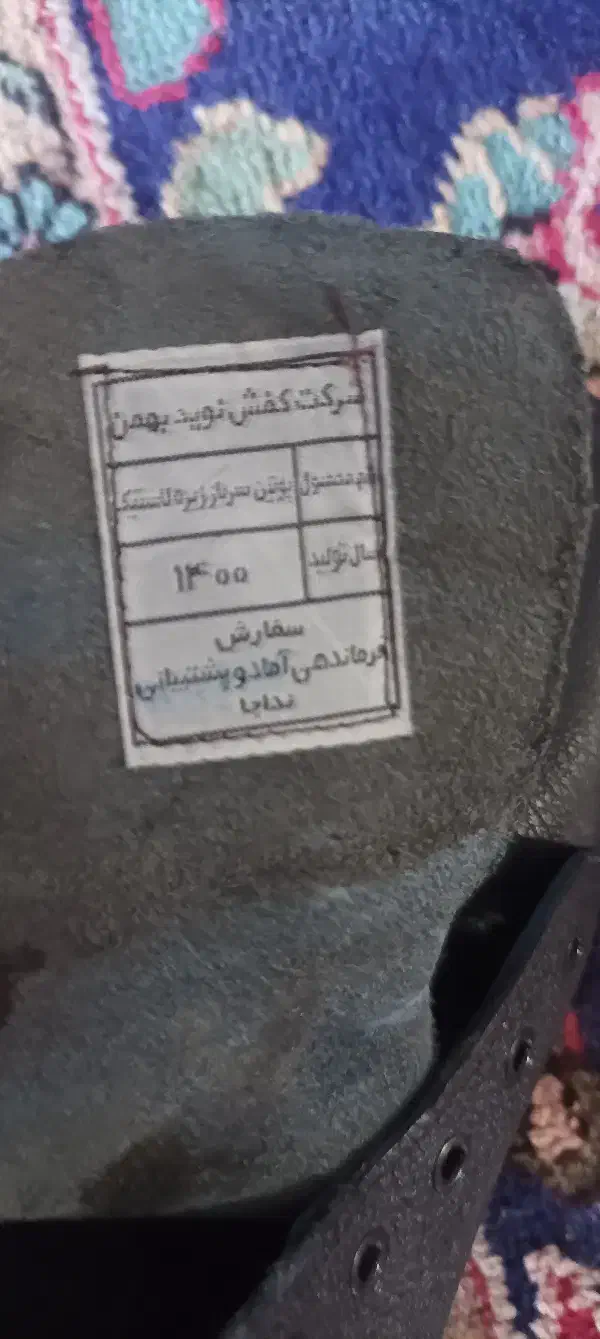 شرکت کفش نوید بهمن
نام محصول پوتین سرباز زیره لاستیک
سال تولید ۱۴۰۰
سفارش
فرماندهی آماد و پشتیبانی
نداجا